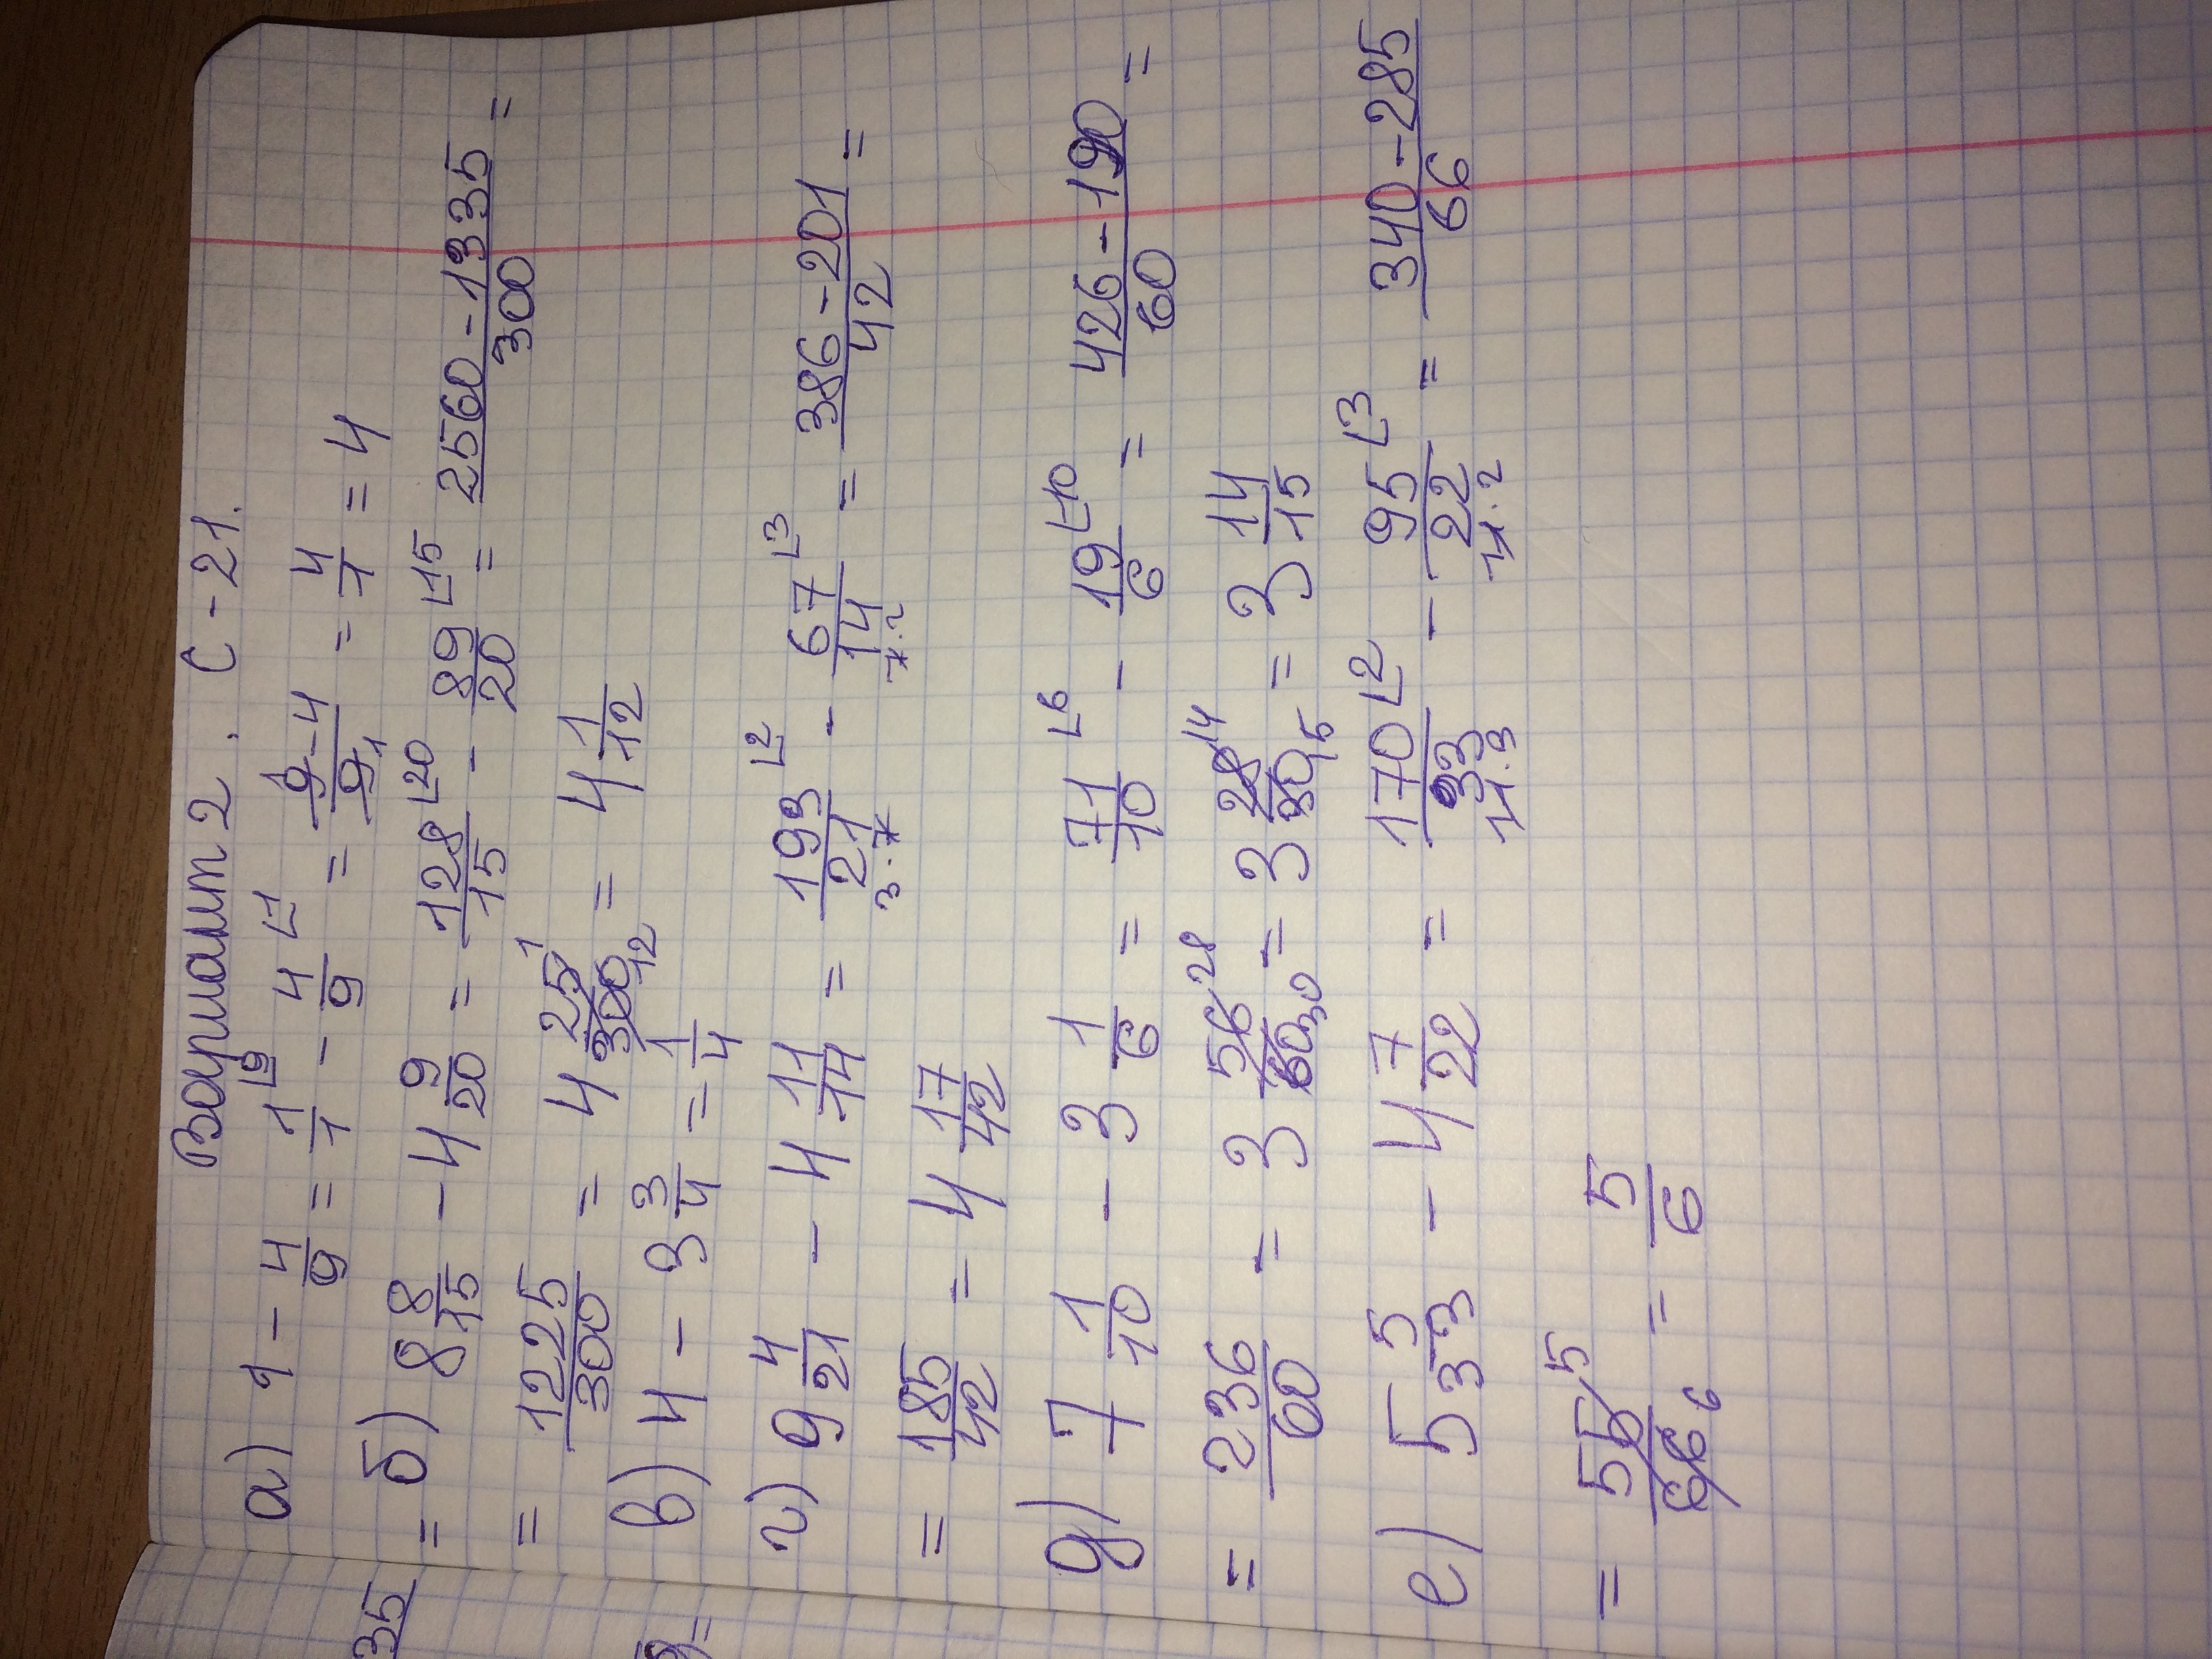 Вариант 2. С-21.
а) 1 - 4/9 = 1/1 ⌊9 - 4/9 ⌊1 = 9-4/9 1 = 4/1 = 4
= б) 8 8/15 - 4 9/20 = 128/15 ⌊20 - 89/20 ⌊15 = 2560-1335/300 =
= 1225/300 = 4 25/300 1 12 = 4 1/12
в) 4 - 3 3/4 = 1/4
г) 9 4/21 - 4 11/14 = 193/21 ⌊2 - 67/14 ⌊3 = 386-201/42 =
3·7 7·2
= 185/42 = 4 17/42
д) 7 1/10 - 3 1/6 = 71/10 ⌊6 - 19/6 ⌊10 = 426-190/60 =
= 236/60 = 3 56/60 28 30 = 3 28/30 14 15 = 3 14/15
е) 5 5/33 - 4 7/22 = 170/33 ⌊2 - 95/22 ⌊3 = 340-285/66
11·3 11·2
= 55/66 5 6 = 5/6
35